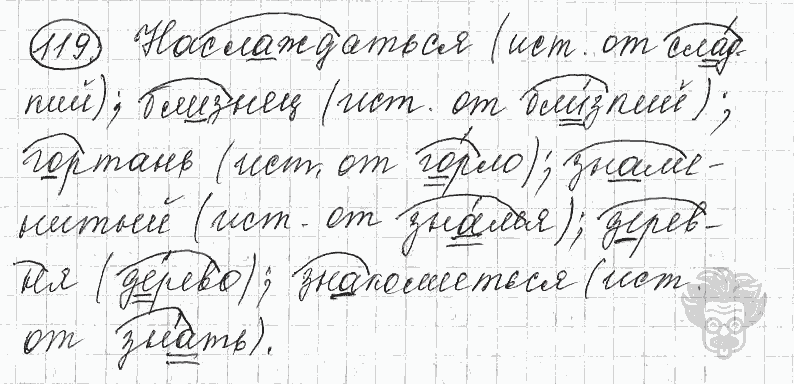 119. Наслаждаться (ист. от слад-
кий); близнец (ист. от близкий);
гортань (ист. от горло); знаме-
нитый (ист. от знамья); дерев-
ня (дерево); знакомиться (ист.
от знать).